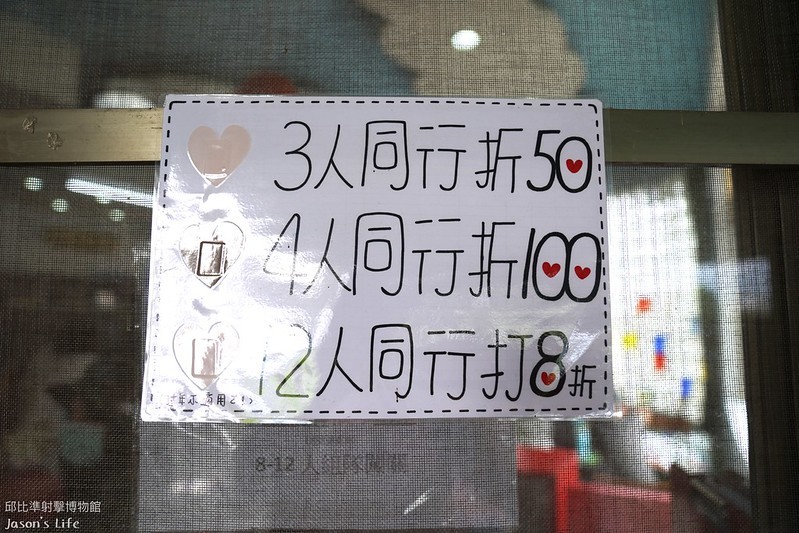 3人同行折50
4人同行折100
12人同行打8折
8-12 人組隊
邱比準射擊博物館
Jason's Life